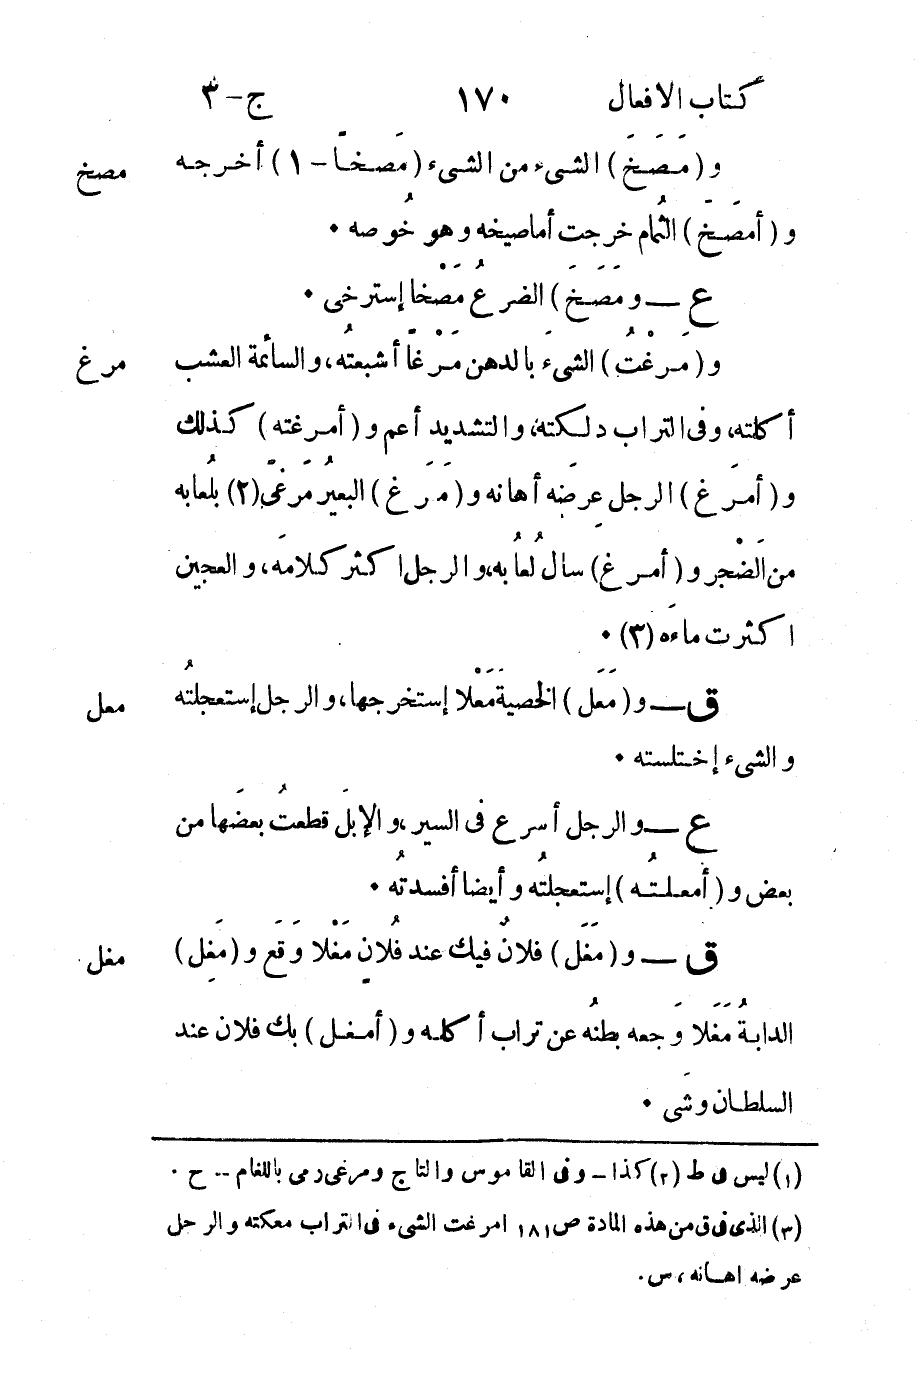 كتاب الافعال ١٧٠ ج-٣
و (مَصَخَ) الشىء من الشىء (مَصخاً - ١) أخرجه مصخ
و (أمصَخَ) الثُّمام خرجت أماصيخه وهو خُوصه •
ع — و مَصَخَ) الضرعُ مَصْخا إسترخى •
و (مَرغْتُ) الشىءَ بالدهن مَرْغاً أشبعتُه، والسائمة العشب مرغ
أكلته، وفى التراب دلكته، والتشديد أعم و (أمرغته) كذلك
و (أمرَغ) الرجل عِرضَه أهانه و (مَرَغ) البعيرُ مَرغىً (٢) بلُعابه
من الضَجْر و (أمرغ) سالُ لُعابه، والرجل اكثر كلامَه، والعجين
اكثرت ماءَه (٣) •
ق — و (مَعَل) الخصية مَعْلا إستخرجها، والرجل إستعجلتُه معل
والشىء إختلسته •
ع — والرجل أسرع فى السير، والإبلَ قطعتُ بعضَها من
بعض و (أمعلتُه) إستعجلتُه وأيضا أفسدتُه •
ق — و (مَغَل) فلانٌ فيك عند فُلانٍ مَغْلا وَقَع و (مَغِل) مغل
الدابةُ مَغَلا وَجعه بطنُه عن تراب أكله و (أمغل) بك فلان عند
السلطان وشَى •
(١) ليس فى ط (٢) كذا - وفى القاموس والتاج ومرغى رمى باللغام -- ح .
(٣) الذى فى ق من هذه المادة ص ١٨١ امرغت الشىء فى التراب معكته والرجل
عرضه اهانه، س.